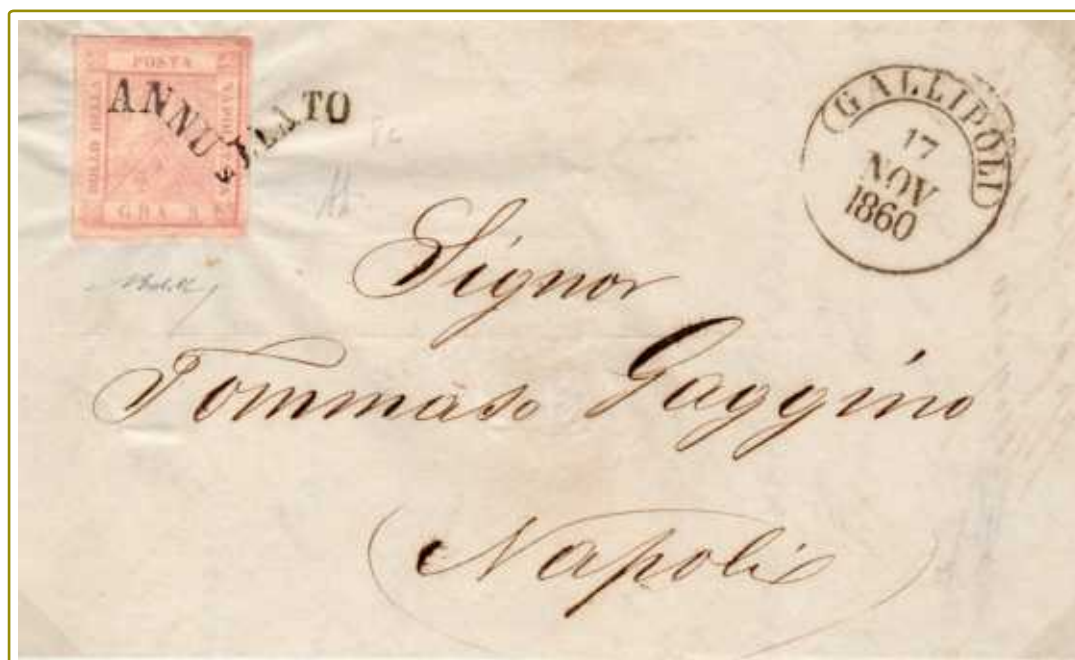 POSTA
BOLLO DELLA
GRA
ANNULLATO
GALLIPOLI
17
NOV
1860
Signor
Tommaso Gaggino
Napoli